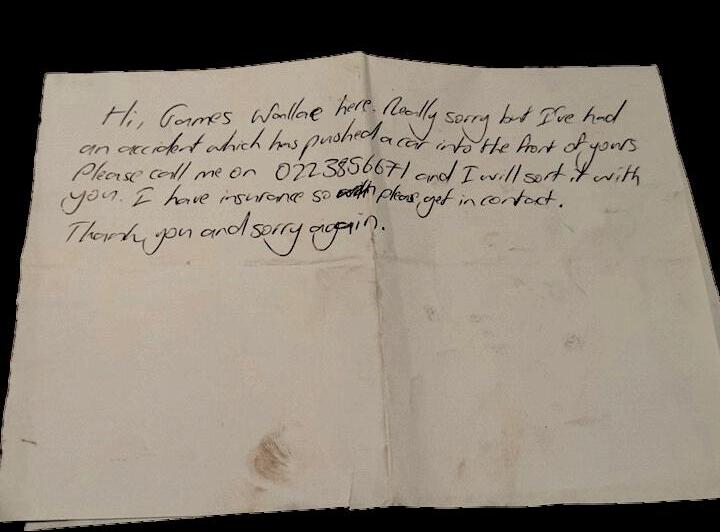 Hi, James Wallace here. Really sorry but I've had
an accident which has pushed a car into the front of yours
Please call me on 0223856671 and I will sort it with
you. I have insurance so please get in contact.
Thank you and sorry again.